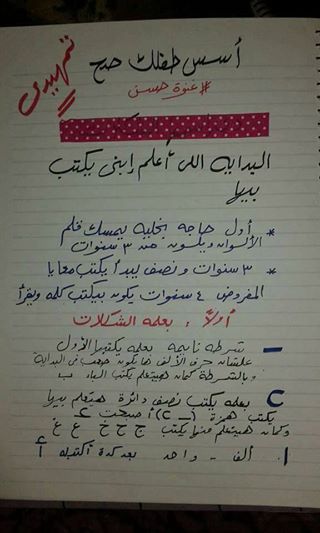 تمهيدى
أسس طفلك صح
# غنوة حسن
البدايه اللى أعلم إبنى يكتب
بيها
* أول حاجه بخليه يمسك قلم
الألوان ويلون من ٣ سنوات
* ٣ سنوات ونصف يبدأ يكتب معايا
المفروض ٤ سنوات يكون بيكتب كلمه ويقرأ
أولاً : بعلمه الشكلات
— شرطه نايمه بعلمه يكتبها الأول
علشان حرف الألف هيكون صعب فى البدايه
وبالشرطة كمان هيتعلم يكتب الباء ب
C بعلمه يكتب نصف دائرة هيتعلم بيها
يكتب همزة (C –) أصبحت ء
وكمان هيتعلم منها يكتب ج ح خ ع غ
ا. ألف - واحد بعد كدة أكتبله أ